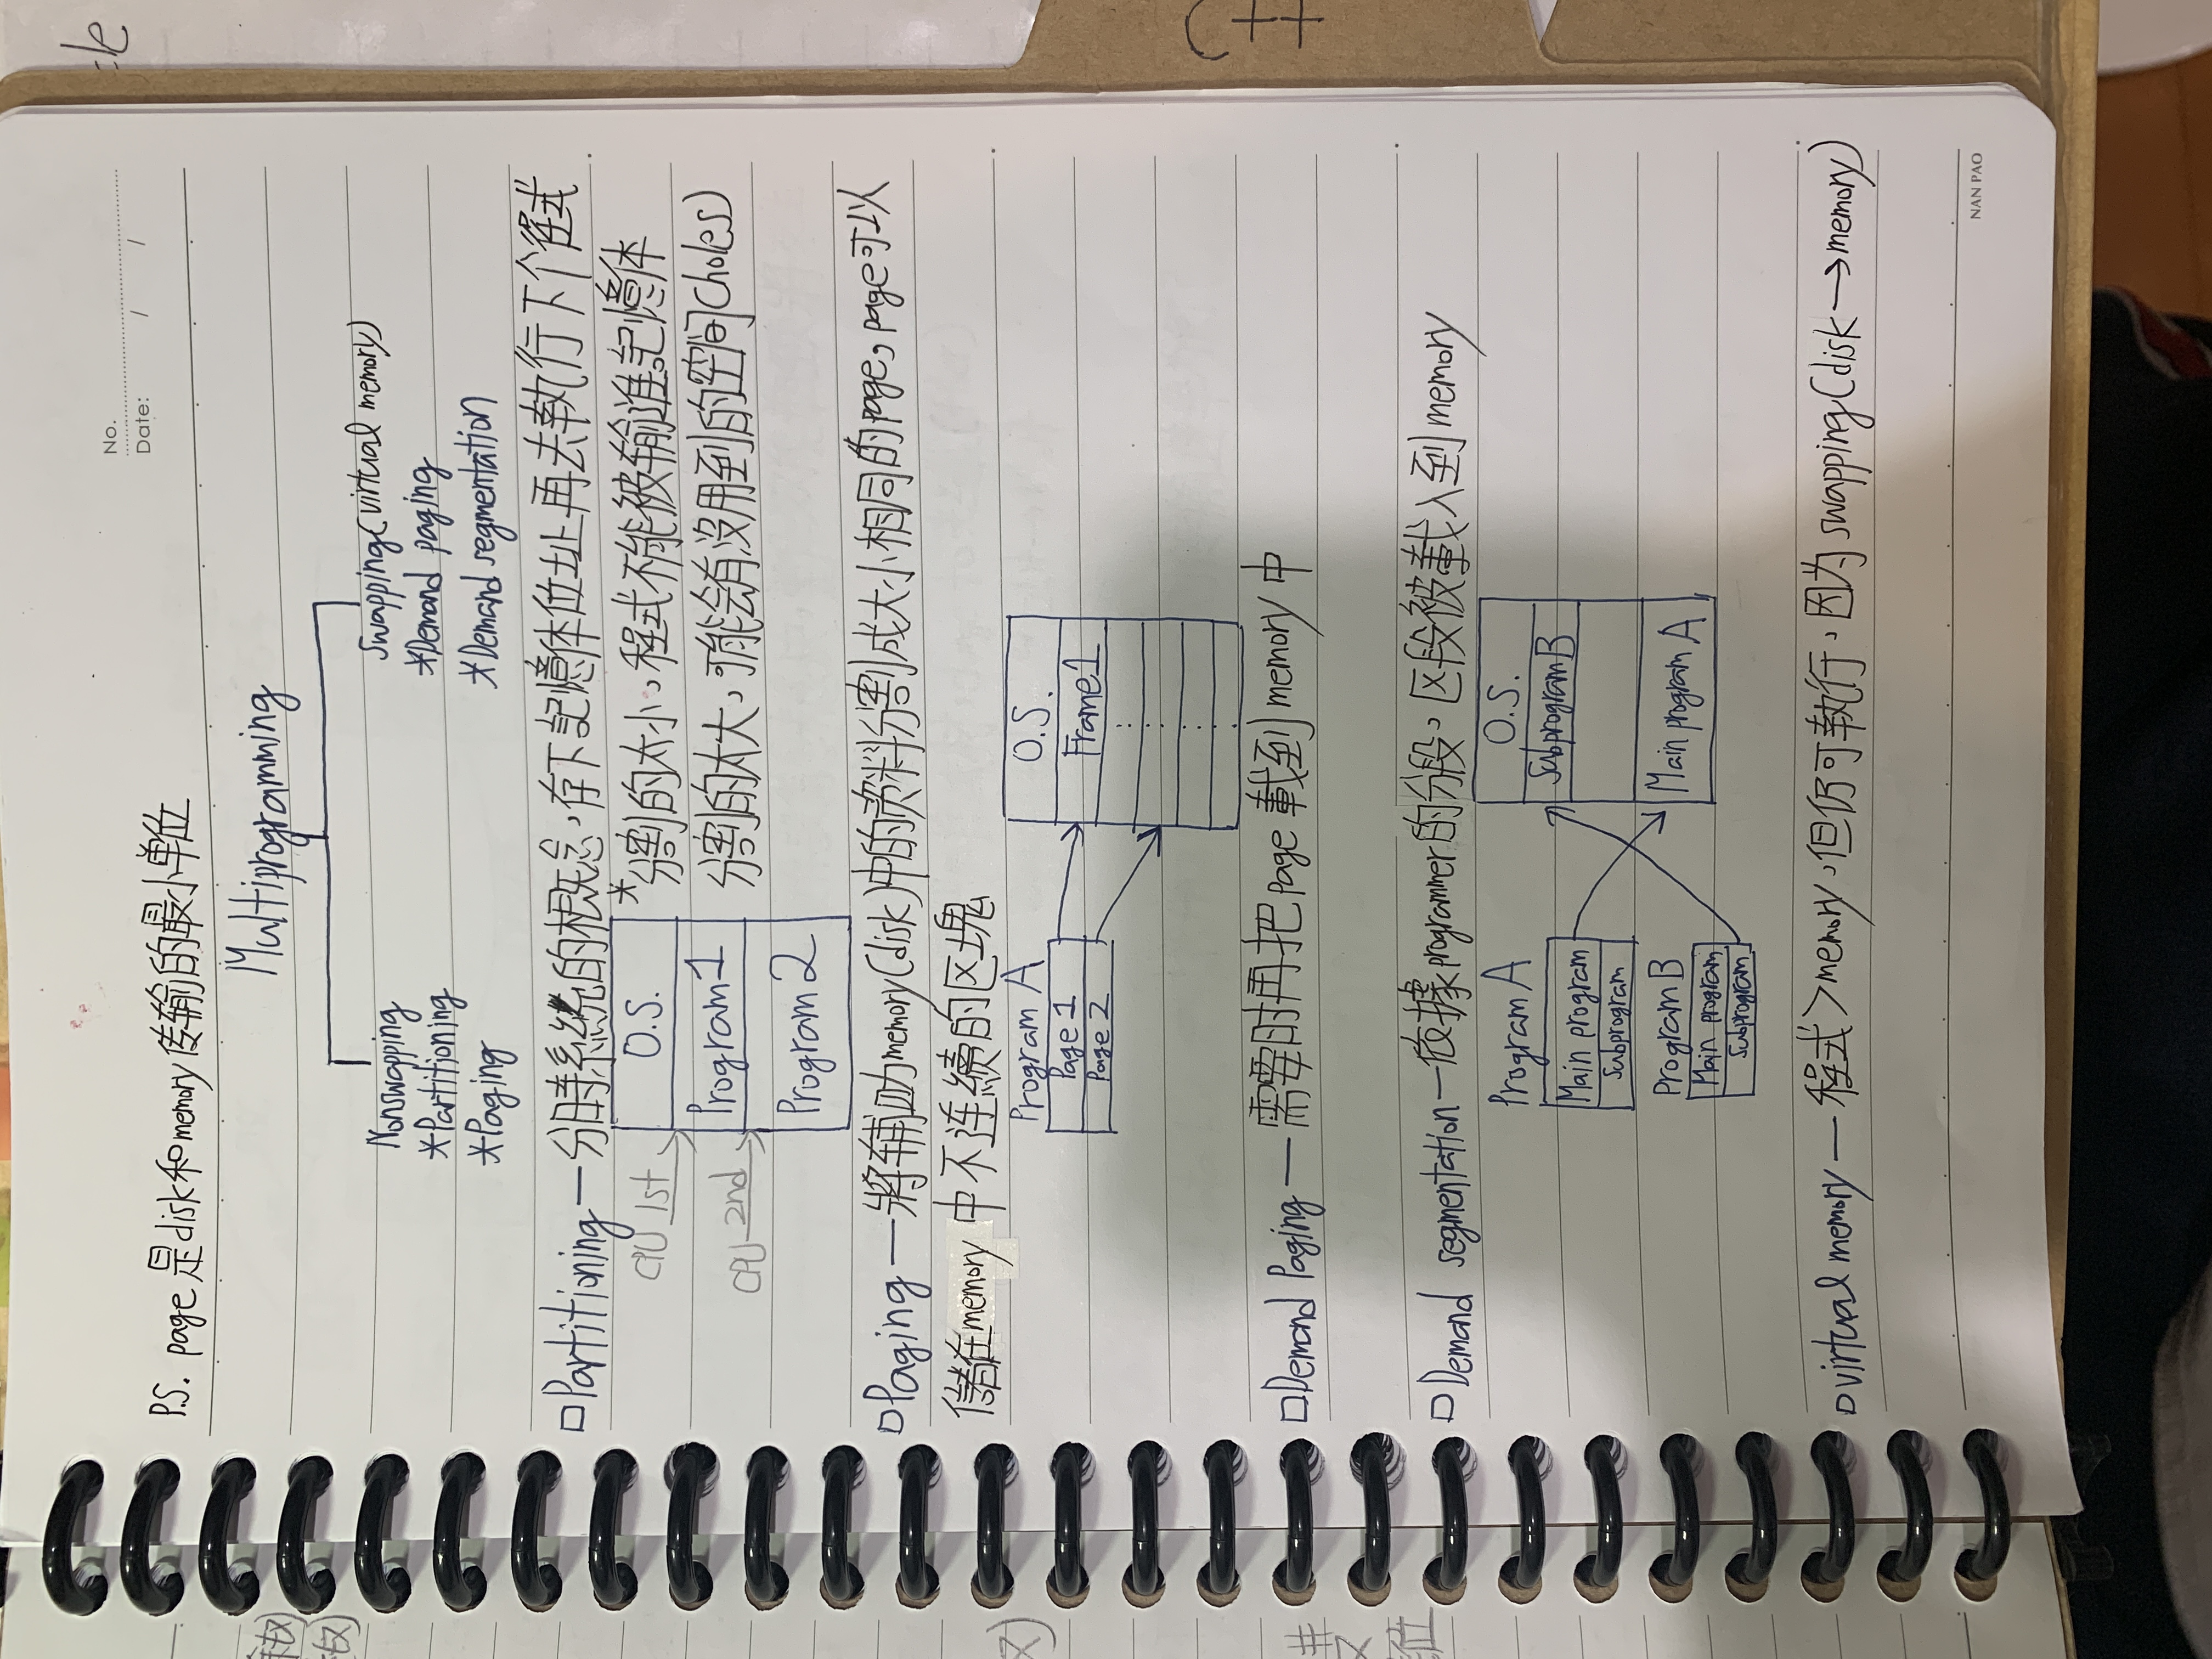 No.
Date: / /
P.S. page 是disk和memory传输的最小单位
Multiprogramming
Nonswapping
*Partitioning
*Paging
Swapping(virtual memory)
*Demand paging
*Demand segmentation
□Partitioning—分時系統的概念,存下記憶体位址再去執行下个程式
CPU 1st
CPU 2nd
O.S.
Program1
Program2
*分割的太小,程式不能被输進記憶体
分割的太大,可能会有沒用到的空间(holes)
□Paging—將辅助memory(disk)中的资料分割成大小相同的page,page可以
儲在memory中不连續的区塊
Program A
Page 1
Page 2
O.S.
Frame1
□Demand Paging—需要时再把page載到memory中
□Demand segmentation—依據programmer的分段,区段被載入到memory
Program A
Main program
Subprogram
Program B
Main program
Subprogram
O.S.
Subprogram B
Main program A
□virtual memory—程式>memory,但仍可執行,因为swapping(disk→memory)
NAN PAO
C++